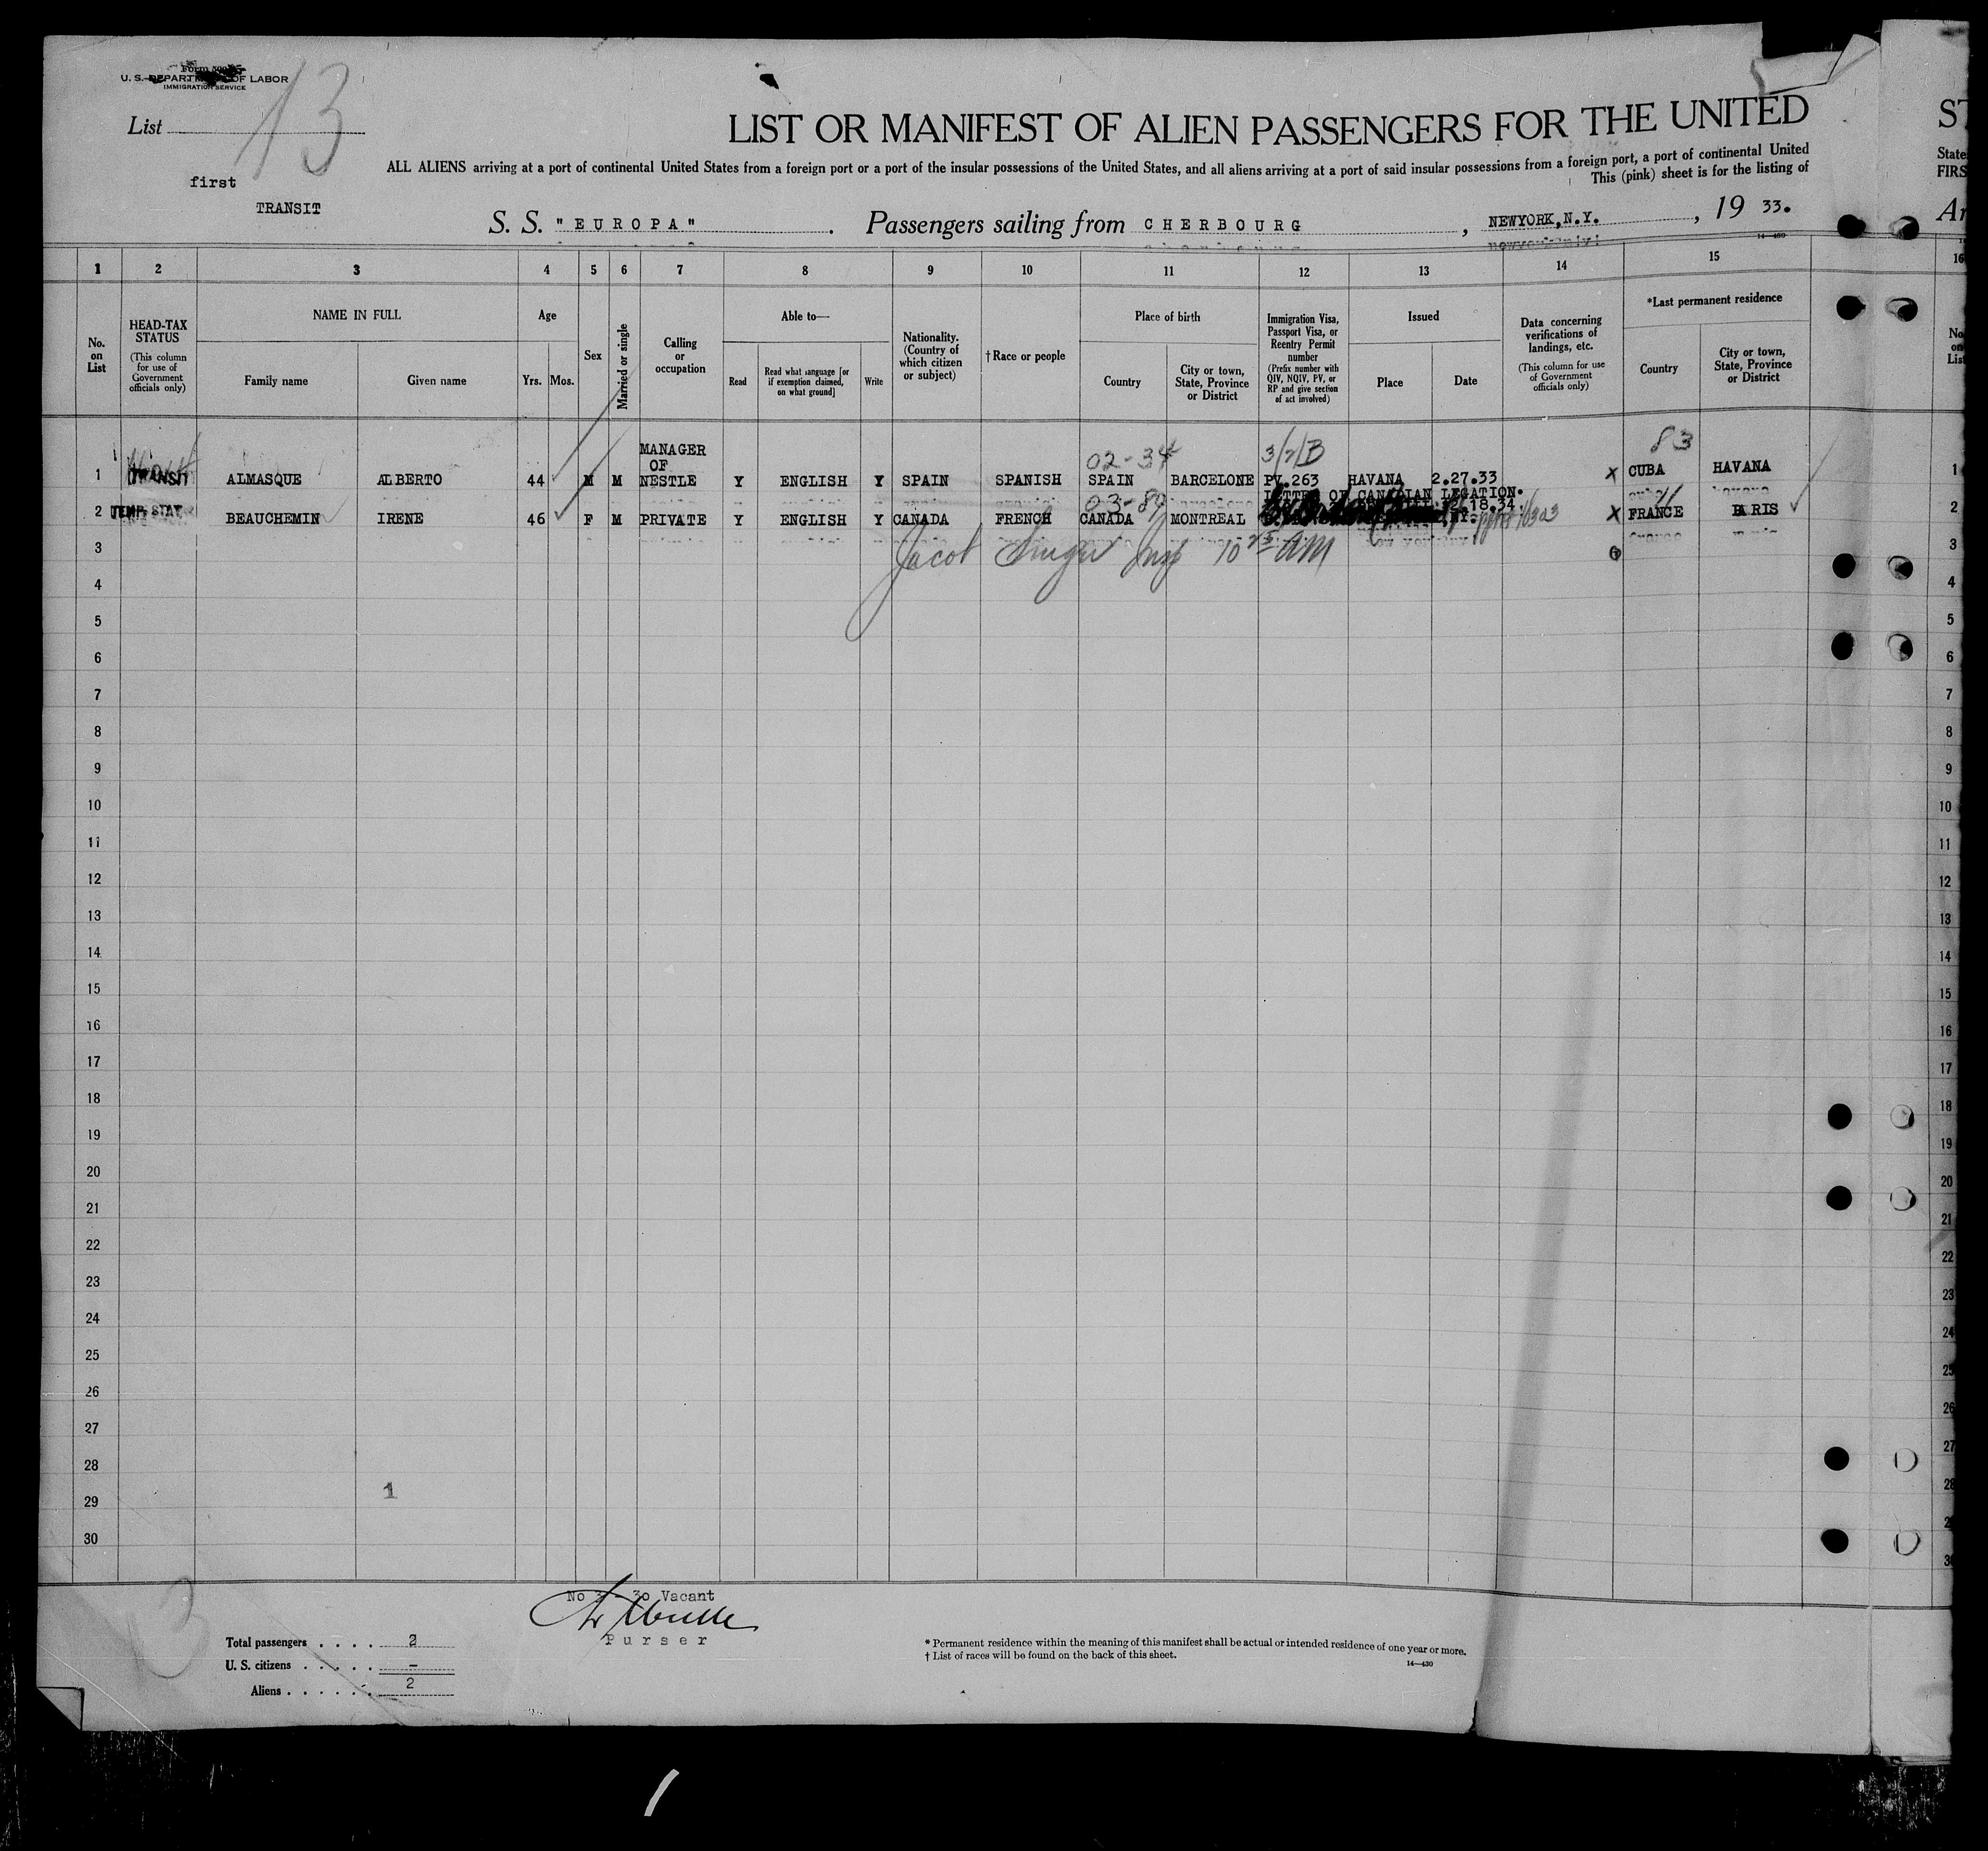 U. S. DEPARTMENT OF LABOR
IMMIGRATION SERVICE
List 13
first
TRANSIT
LIST OR MANIFEST OF ALIEN PASSENGERS FOR THE UNITED
ST
ALL ALIENS arriving at a port of continental United States from a foreign port or a port of the insular possessions of the United States, and all aliens arriving at a port of said insular possessions from a foreign port, a port of continental United
State
This (pink) sheet is for the listing of
FIRS
S. S. "EUROPA". Passengers sailing from CHERBOURG, NEWYORK,N.Y., 19 33.
Ar
14—430
1 2 3 4 5 6 7 8 9 10 11 12 13 14 15 16
No. on List
HEAD-TAX STATUS
(This column for use of Government officials only)
NAME IN FULL
Family name
Given name
Age
Yrs.
Mos.
Sex
Married or single
Calling or occupation
Able to—
Read
Read what language [or if exemption claimed, on what ground]
Write
Nationality. (Country of which citizen or subject)
†Race or people
Place of birth
Country
City or town, State, Province or District
Immigration Visa, Passport Visa, or Reentry Permit number
(Prefix number with QIV, NQIV, PV, or RP and give section of act involved)
Issued
Place
Date
Data concerning verifications of landings, etc.
(This column for use of Government officials only)
*Last permanent residence
Country
City or town, State, Province or District
No. on List
02-34 3/7/B 83
1 TRANSIT ALMASQUE ALBERTO 44 M M MANAGER OF NESTLE Y ENGLISH Y SPAIN SPANISH SPAIN BARCELONE PV.263 HAVANA 2.27.33 X CUBA HAVANA 1
03-89 LETTER OF CANADIAN LEGATION.
2 TEMP. STAY BEAUCHEMIN IRENE 46 F M PRIVATE Y ENGLISH Y CANADA FRENCH CANADA MONTREAL 2.18.34. X FRANCE PARIS 2
3 Jacob Insp 10 25 AM 3
4 4
5 5
6 6
7 7
8 8
9 9
10 10
11 11
12 12
13 13
14 14
15 15
16 16
17 17
18 18
19 19
20 20
21 21
22 22
23 23
24 24
25 25
26 26
27 27
28 28
1
29 2
30 3
3
No 3 - 30 Vacant
Purser
Total passengers . . . . 2
U. S. citizens . . . . . –
Aliens . . . . . . 2
* Permanent residence within the meaning of this manifest shall be actual or intended residence of one year or more.
† List of races will be found on the back of this sheet.
14—430
1